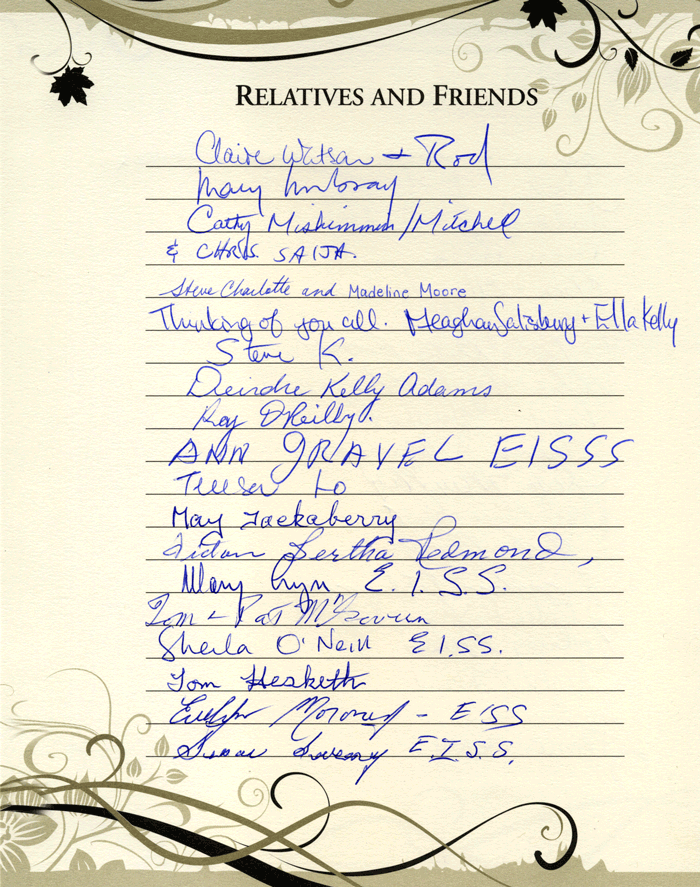 RELATIVES AND FRIENDS
Claire Watson + Rod
Mary
Cathy Miskimmin/Mitchell
& CHRIS. SAIJA.
Steve Charlotte and Madeline Moore
Thinking of you all. Meaghan Salisbury + Ella Kelly
Steve K.
Deirdre Kelly Adams
Roy O'Reilly.
ANN GRAVEL EISSS
Teresa Lo
May Jackaberry
Aidan Bertha Redmond,
Mary Lynn E.I.S.S.
Tom + Pat McGovern
Sheila O'Neill EI.SS.
Tom Hesketh
Evelyn - EISS
Susan E.I.S.S.